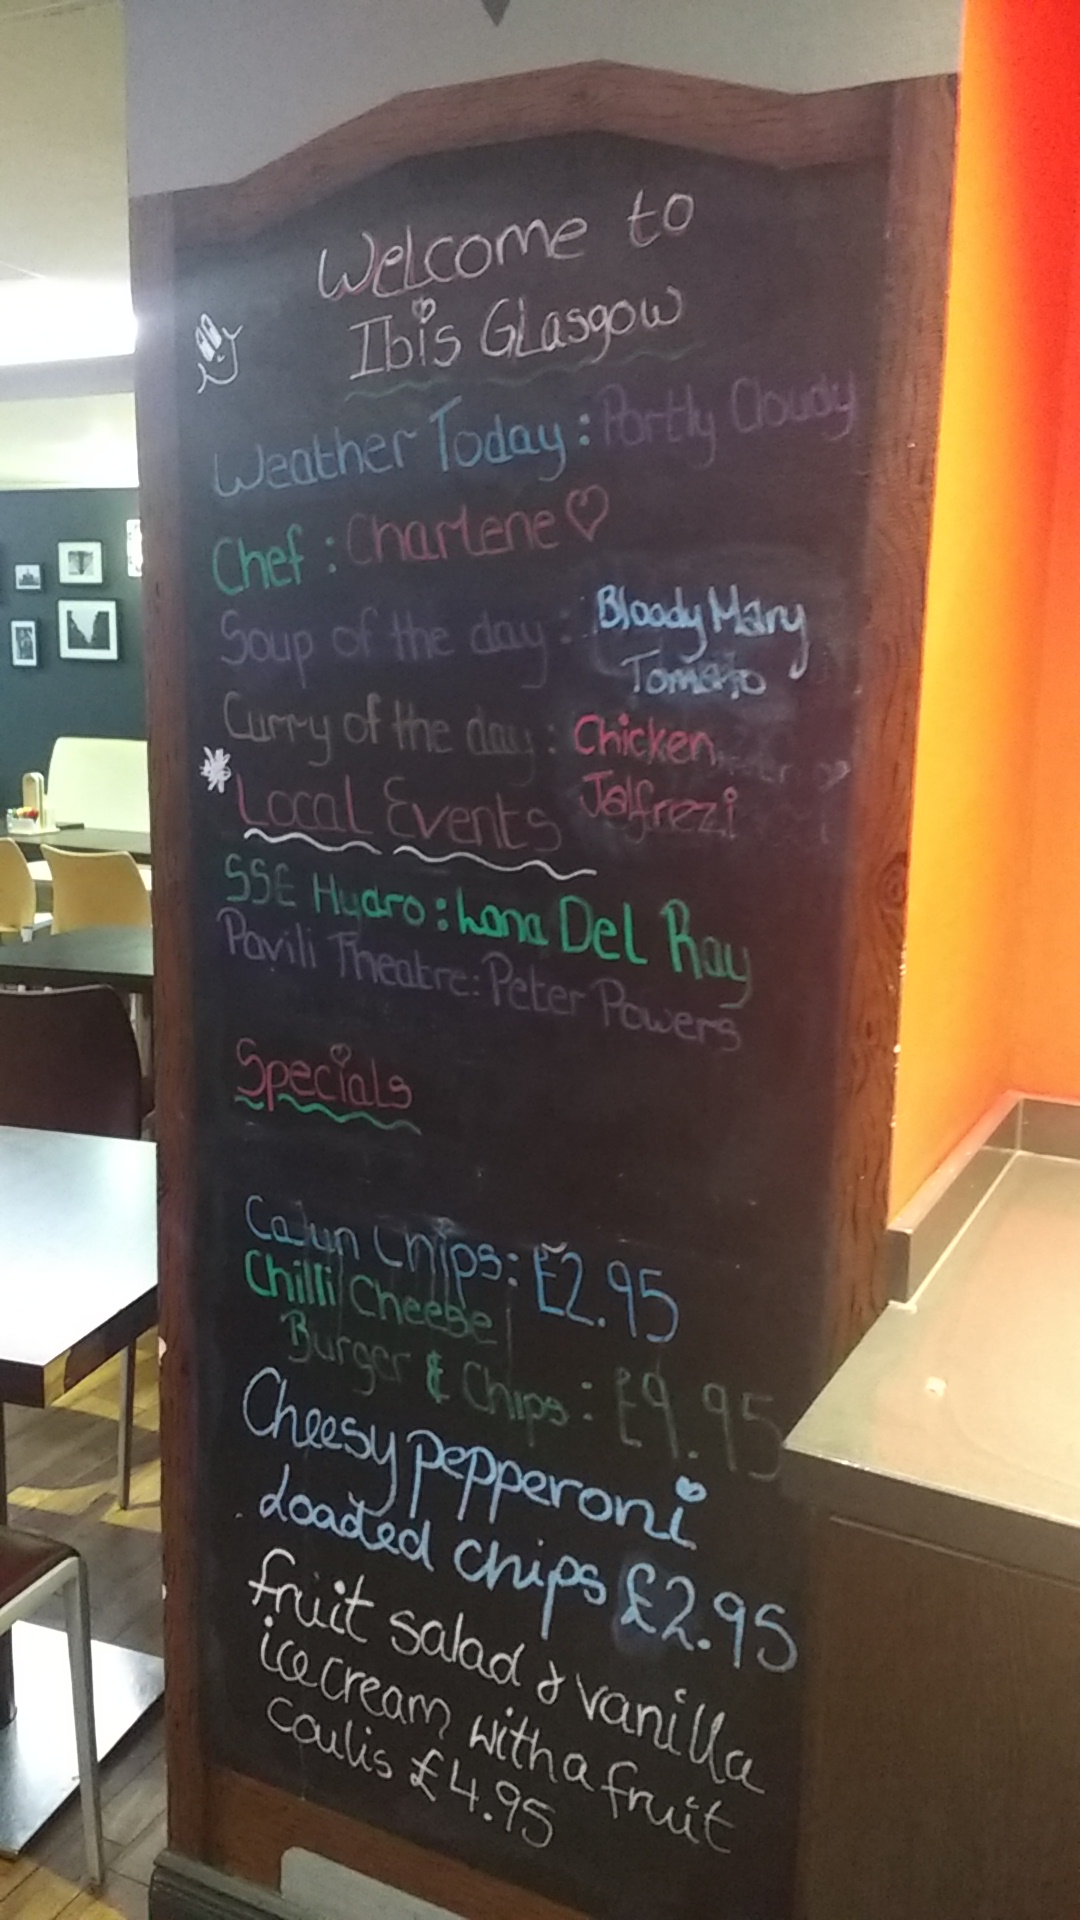 Welcome to
Ibis Glasgow
Weather Today : Partly Cloudy
Chef : Charlene ♡
Soup of the day : Bloody Mary
Tomato
Curry of the day : Chicken
Jalfrezi
Local Events
SSE Hydro : Lana Del Ray
Pavili Theatre : Peter Powers
Specials
Cajun Chips : £2.95
Chilli Cheese
Burger & Chips : £9.95
Cheesy pepperoni
Loaded chips £2.95
fruit salad & vanilla
ice cream with a fruit
coulis £4.95